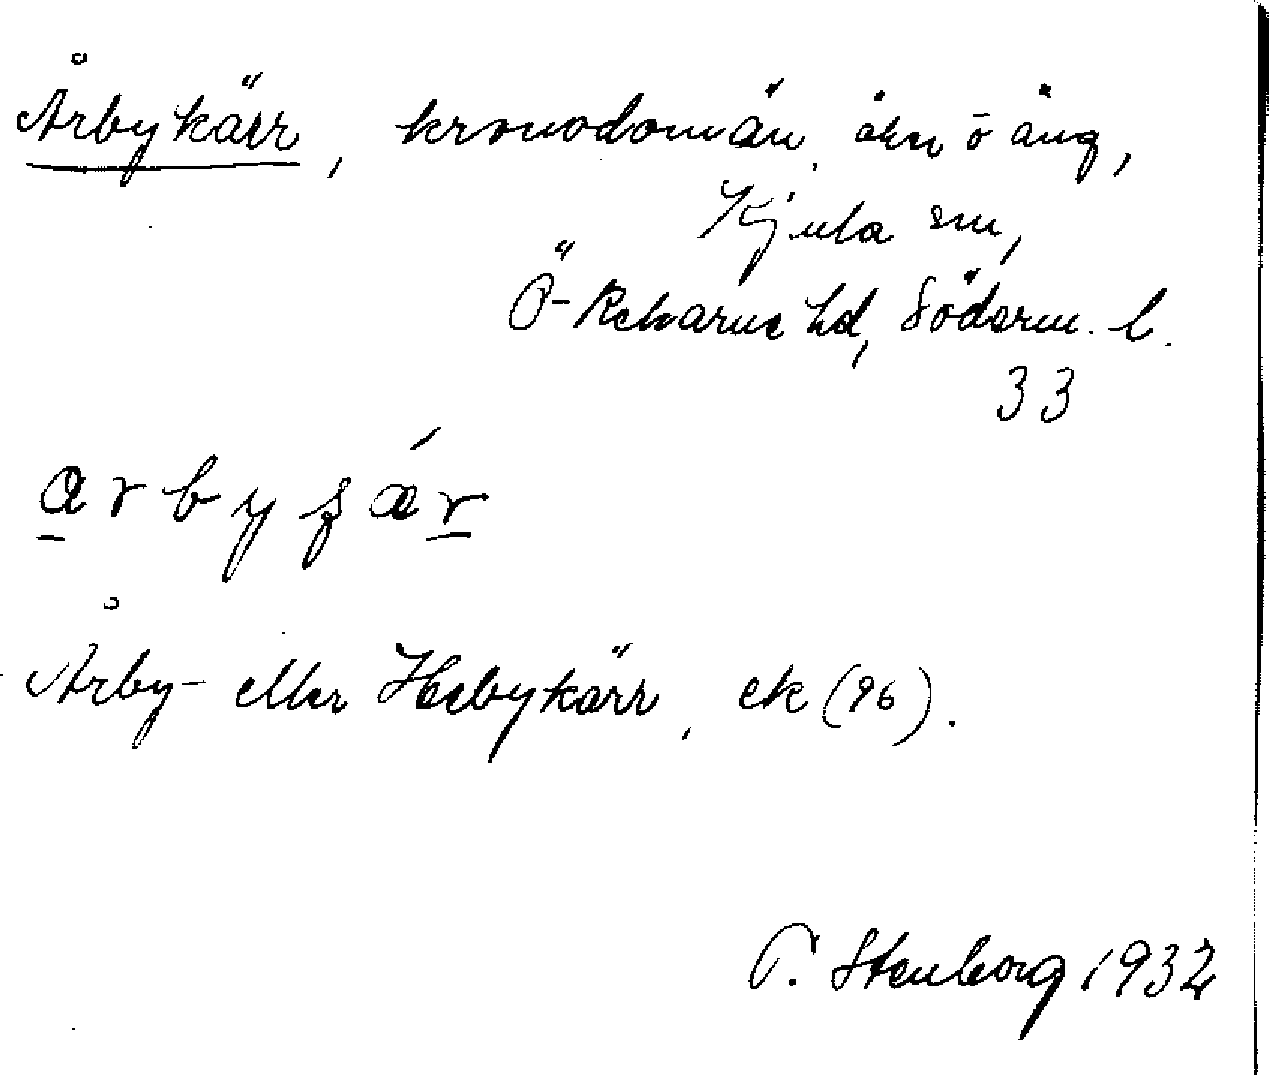 Årbykärr, kronodomän, åker o äng,
Kjula sn,
Ö-Rekarne hd, Söderm. l.
33
Årby- eller Hebykärr, ek (96).
P. Stenborg 1932